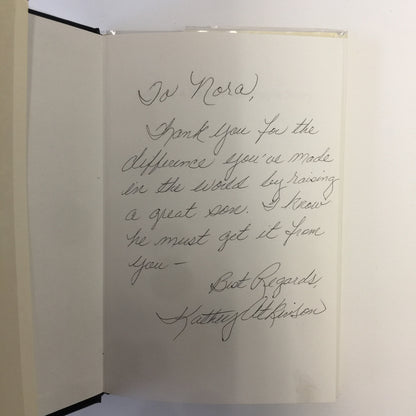 To Nora,
Thank you for the
difference you've made
in the world by raising
a great son. I know
he must get it from
you —
Best Regards,
Kathy Atkinson